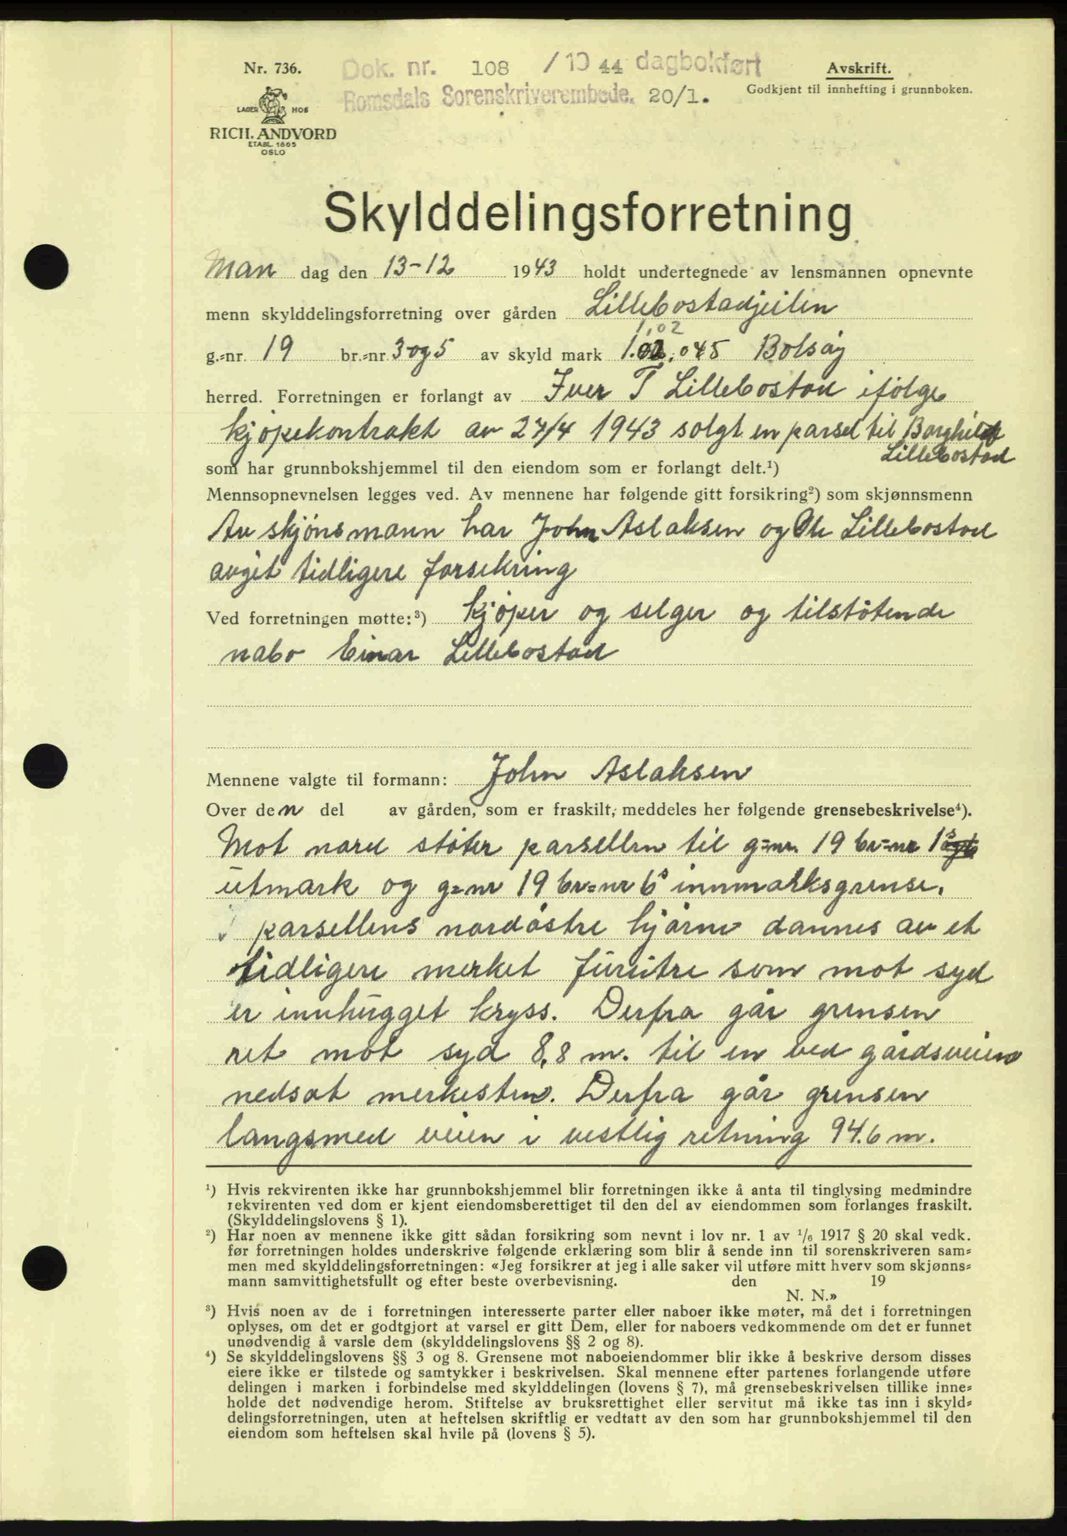 Nr. 736.
Dok. nr. 108 / 19 44 dagbokført
Romsdals Sorenskriverembede. 20/1.
Avskrift.
Godkjent til innhefting i grunnboken.
LAGER HOS
RICH. ANDVORD
ETABL. 1865
OSLO
Skylddelingsforretning
Man dag den 13-12 1943 holdt undertegnede av lensmannen opnevnte
menn skylddelingsforretning over gården Lillebostadjeilin
1,02
g.-nr. 19 br.-nr. 3 og 5 av skyld mark 1.02, 045 Bolsøy
herred. Forretningen er forlangt av Iver T Lillebostad ifølge
kjøpekontrakt av 27/4 1943 solgt en parsel til Borghild
Lillebostad
som har grunnbokshjemmel til den eiendom som er forlangt delt.¹)
Mennsopnevnelsen legges ved. Av mennene har følgende gitt forsikring²) som skjønnsmenn
Av skjönsmann har John Aslaksen og Ole Lillebostad
avgit tidligere forsekring
Ved forretningen møtte:³) kjöper og selger og tilstötende
nabo Einar Lillebostad
Mennene valgte til formann: John Aslaksen
Over den del av gården, som er fraskilt, meddeles her følgende grensebeskrivelse⁴).
Mot nord stöter parsellen til g=nr. 19 br=nr 1s
utmark og g=nr 19 br=nr 6s innmarksgrense.
I parsellens nordöstre hjörne dannes av et
tidligere merket furutre som mot syd
er innhugget kryss. Derfra går grensen
ret mot syd 8,8 m. til en ved gårdsveien
nedsat merkesten. Derfra går grensen
langsmed veien i vestlig retning 94.6 m.
¹) Hvis rekvirenten ikke har grunnbokshjemmel blir forretningen ikke å anta til tinglysing medmindre
rekvirenten ved dom er kjent eiendomsberettiget til den del av eiendommen som forlanges fraskilt.
(Skylddelingslovens § 1).
²) Har noen av mennene ikke gitt sådan forsikring som nevnt i lov nr. 1 av 1/6 1917 § 20 skal vedk.
før forretningen holdes underskrive følgende erklæring som blir å sende inn til sorenskriveren sam-
men med skylddelingsforretningen: «Jeg forsikrer at jeg i alle saker vil utføre mitt hverv som skjønns-
mann samvittighetsfullt og efter beste overbevisning. den 19
N. N.»
³) Hvis noen av de i forretningen interesserte parter eller naboer ikke møter, må det i forretningen
oplyses, om det er godtgjort at varsel er gitt Dem, eller for naboers vedkommende om det er funnet
unødvendig å varsle dem (skylddelingslovens §§ 2 og 8).
⁴) Se skylddelingslovens §§ 3 og 8. Grensene mot naboeiendommer blir ikke å beskrive dersom disses
eiere ikke er tilstede og samtykker i beskrivelsen. Skal mennene efter partenes forlangende utføre
delingen i marken i forbindelse med skylddelingen (lovens § 7), må grensebeskrivelsen tillike inne-
holde det nødvendige herom. Stiftelse av bruksrettighet eller servitut må ikke tas inn i skyld-
delingsforretningen, uten at heftelsen skriftlig er vedtatt av den som har grunnbokshjemmel til den
eiendom som heftelsen skal hvile på (lovens § 5).